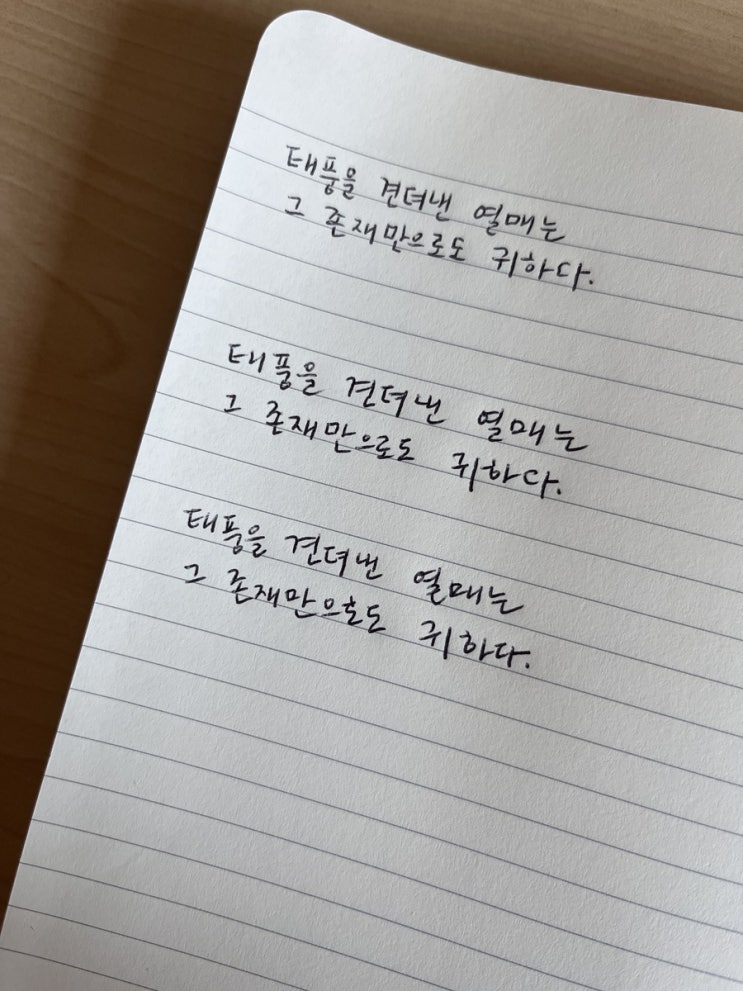 태풍을 견뎌낸 열매는
그 존재만으로도 귀하다.
태풍을 견뎌낸 열매는
그 존재만으로도 귀하다.
태풍을 견뎌낸 열매는
그 존재만으로도 귀하다.